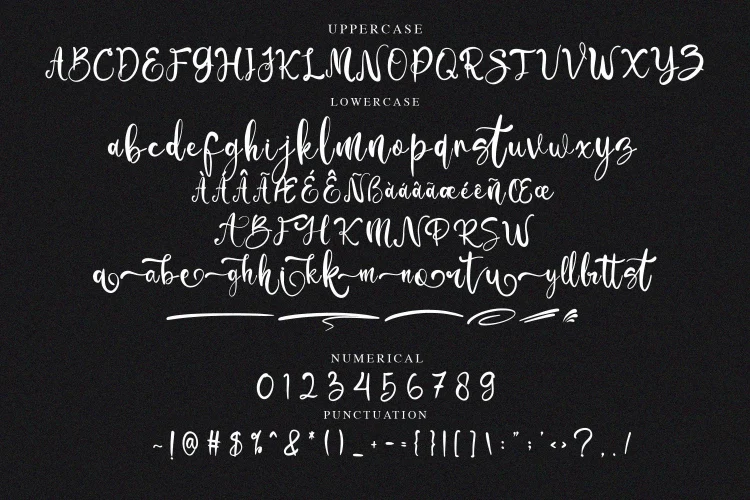 UPPERCASE
ABCDEFGHIJKLMNOPQRSTUVWXYZ
LOWERCASE
abcdefghijklmnopqrstuvwxyz
ÀÁÂÃÆÉÊÑßàáâãæéêñŒœ
ABFHKMNPRSW
NUMERICAL
0123456789
PUNCTUATION
~!@#$%^&*()_+-={}|[]\:";'<>?,./